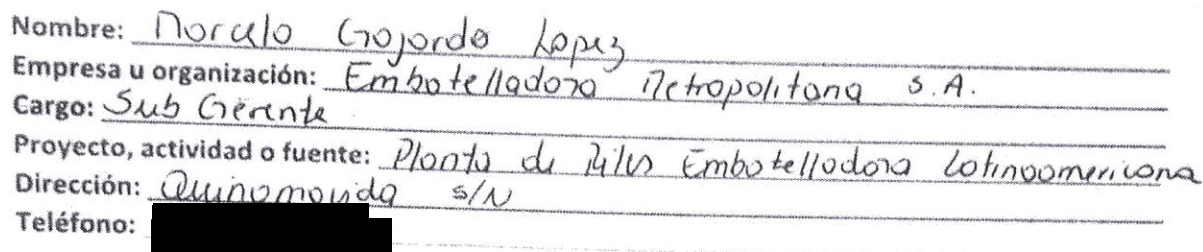 Nombre: Marcelo Gajardo Lopez
Empresa u organización: Embotelladora Metropolitana S.A.
Cargo: Sub Gerente
Proyecto, actividad o fuente: Planta de Riles Embotelladora Latinoamericana
Dirección: Quinamavida S/N
Teléfono: